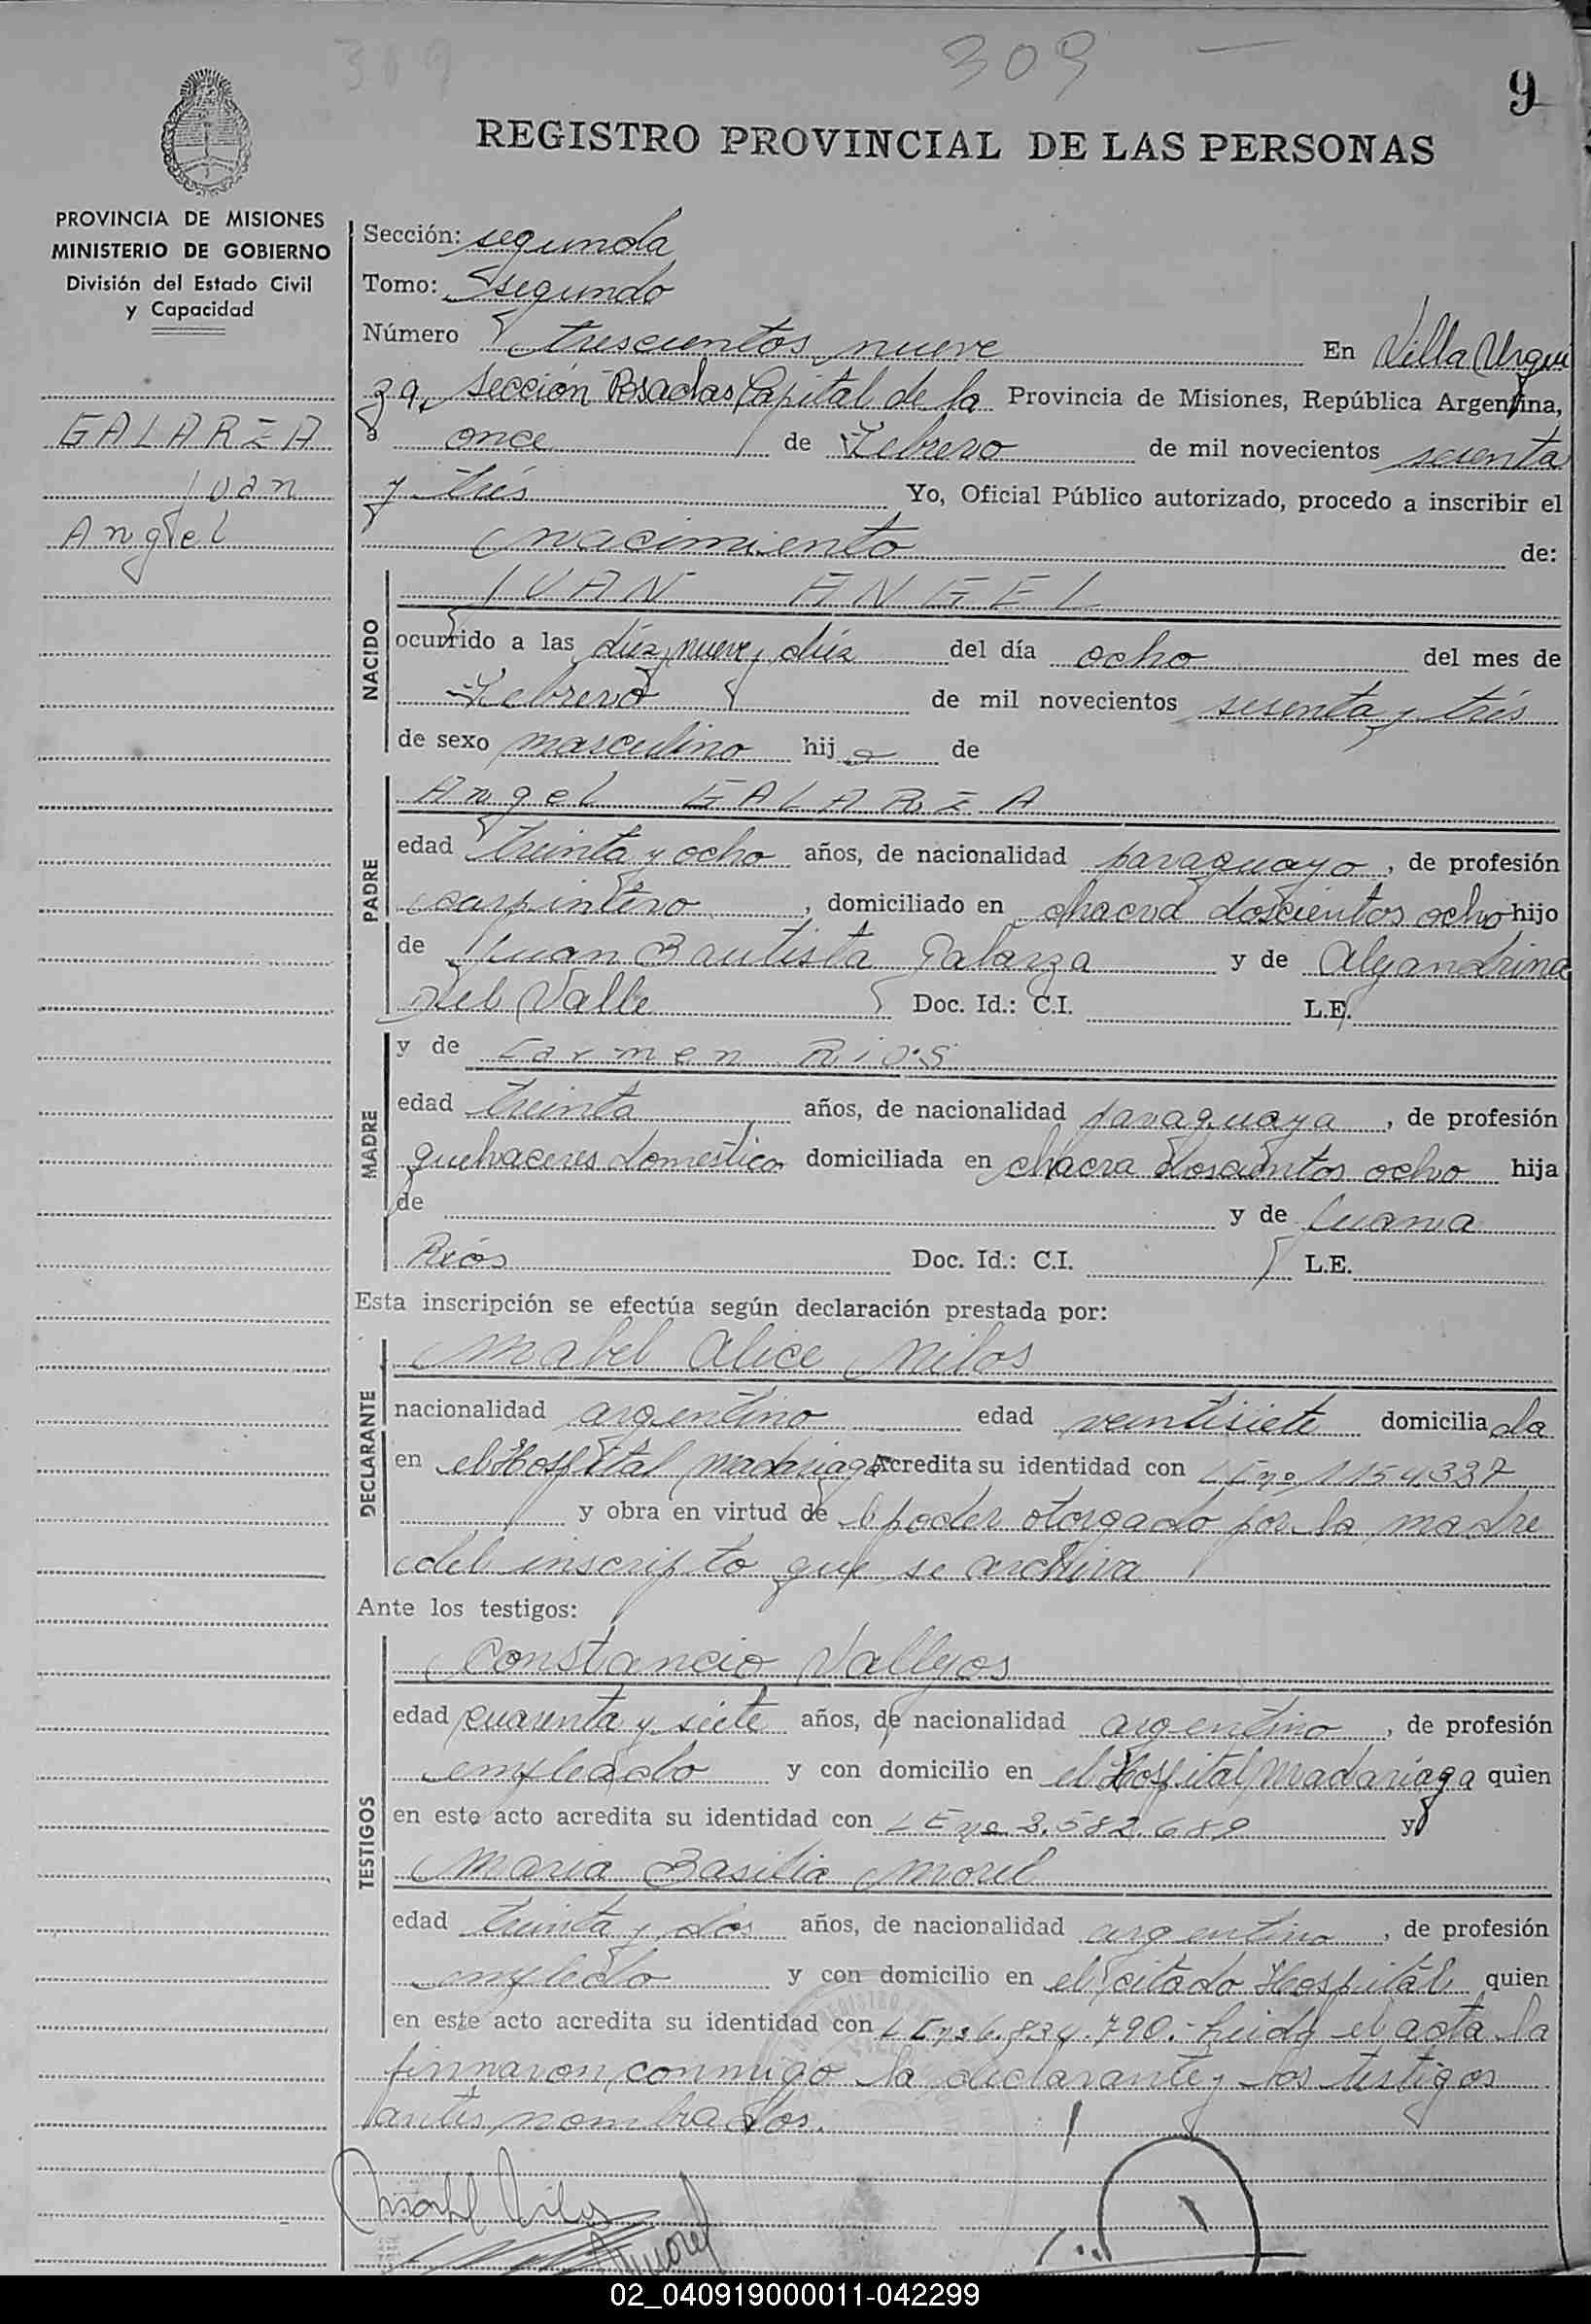 309
309
9
REGISTRO PROVINCIAL DE LAS PERSONAS
PROVINCIA DE MISIONES
MINISTERIO DE GOBIERNO
División del Estado Civil
y Capacidad
GALARZA
Juan
Angel
Sección: segunda
Tomo: Segundo
Número trescientos nueve En Villa Urqui
za, sección Posadas Capital de la Provincia de Misiones, República Argentina,
a once de Febrero de mil novecientos sesenta
y trés Yo, Oficial Público autorizado, procedo a inscribir el
nacimiento de:
NACIDO
JUAN ANGEL
ocurrido a las diez y nueve y diéz del día ocho del mes de
Febrero de mil novecientos sesenta y trés
de sexo masculino hijo de
PADRE
Angel GALARZA
edad treinta y ocho años, de nacionalidad paraguayo, de profesión
carpintero, domiciliado en chacra doscientos ocho hijo
de Juan Bautista Galarza y de Alejandrina
del Valle Doc. Id.: C.I. L.E.
MADRE
y de Carmen Rios
edad treinta años, de nacionalidad paraguaya, de profesión
quehaceres domesticos domiciliada en chacra doscientos ocho hija
de y de Juana
Rios Doc. Id.: C.I. L.E.
Esta inscripción se efectúa según declaración prestada por:
DECLARANTE
Mabel Alice Milos
nacionalidad argentino edad veintisiete domiciliada
en el Hospital Madariaga Acredita su identidad con LE nº 1154337
y obra en virtud de el poder otorgado por la madre
del inscripto que se archiva
Ante los testigos:
TESTIGOS
Constancio Vallejos
edad cuarenta y siete años, de nacionalidad argentino, de profesión
empleado y con domicilio en el Hospital Madariaga quien
en este acto acredita su identidad con LE nº 3.582.689 y
Maria Basilia Morel
edad treinta y dos años, de nacionalidad argentina, de profesión
empleado y con domicilio en el citado Hospital quien
en este acto acredita su identidad con LE nº 6.834.790.- Leida el acta la
firmaron conmigo la declarante y los testigos
antes nombrados.
Mabel Milos
Morel
02_040919000011-042299